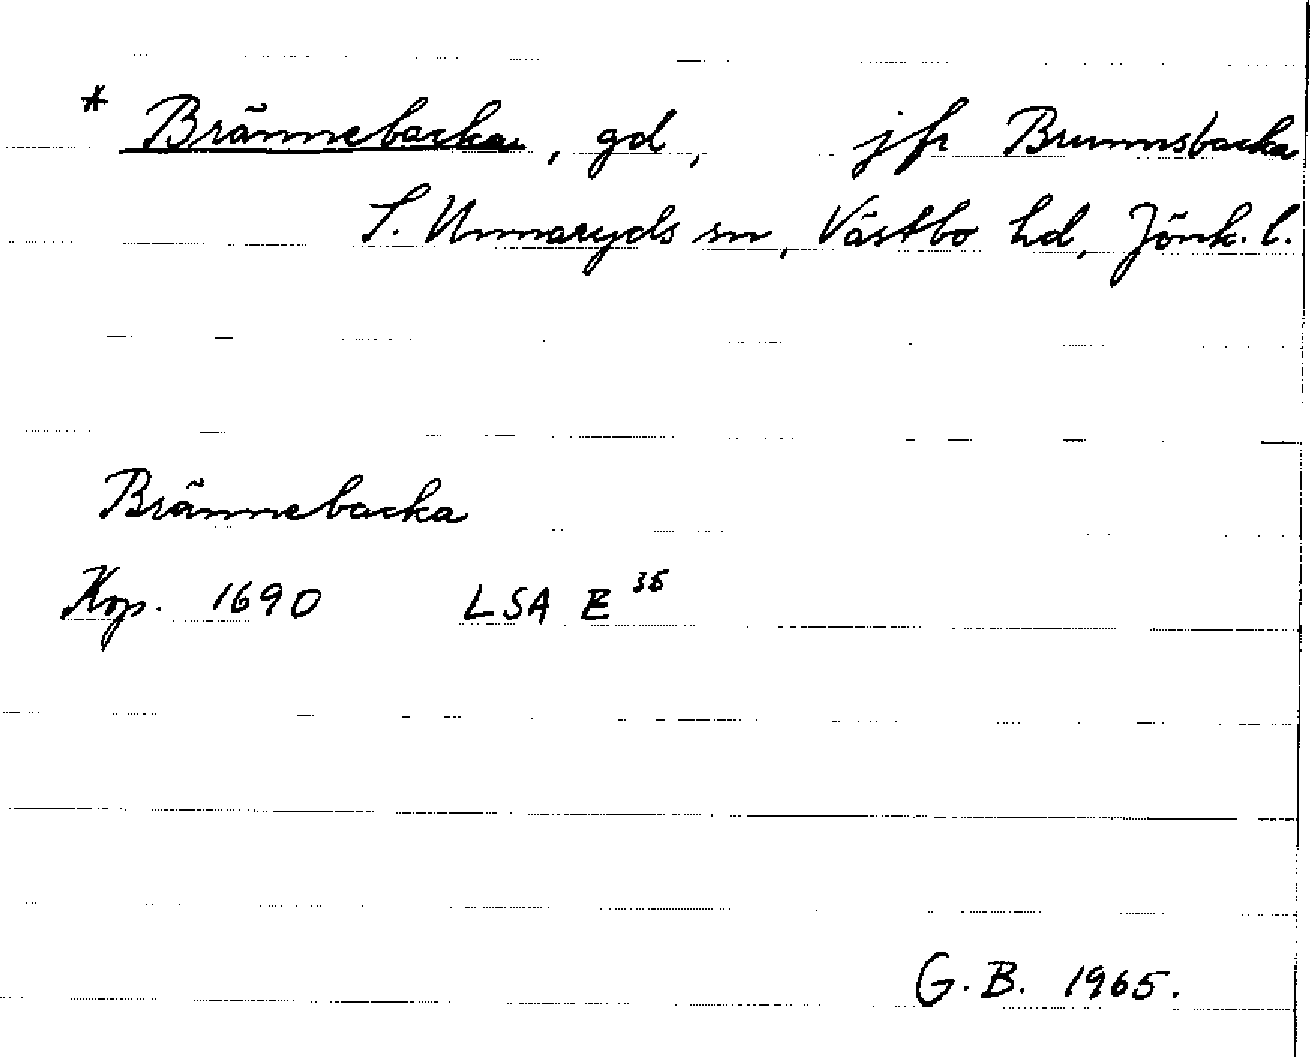 * Brännebacka, gd, jfr Brunnsbacka
S. Unnaryds sn, Västbo hd, Jönk. l.
Brännebacka
Kop. 1690 LSA E 36
G.B. 1965.